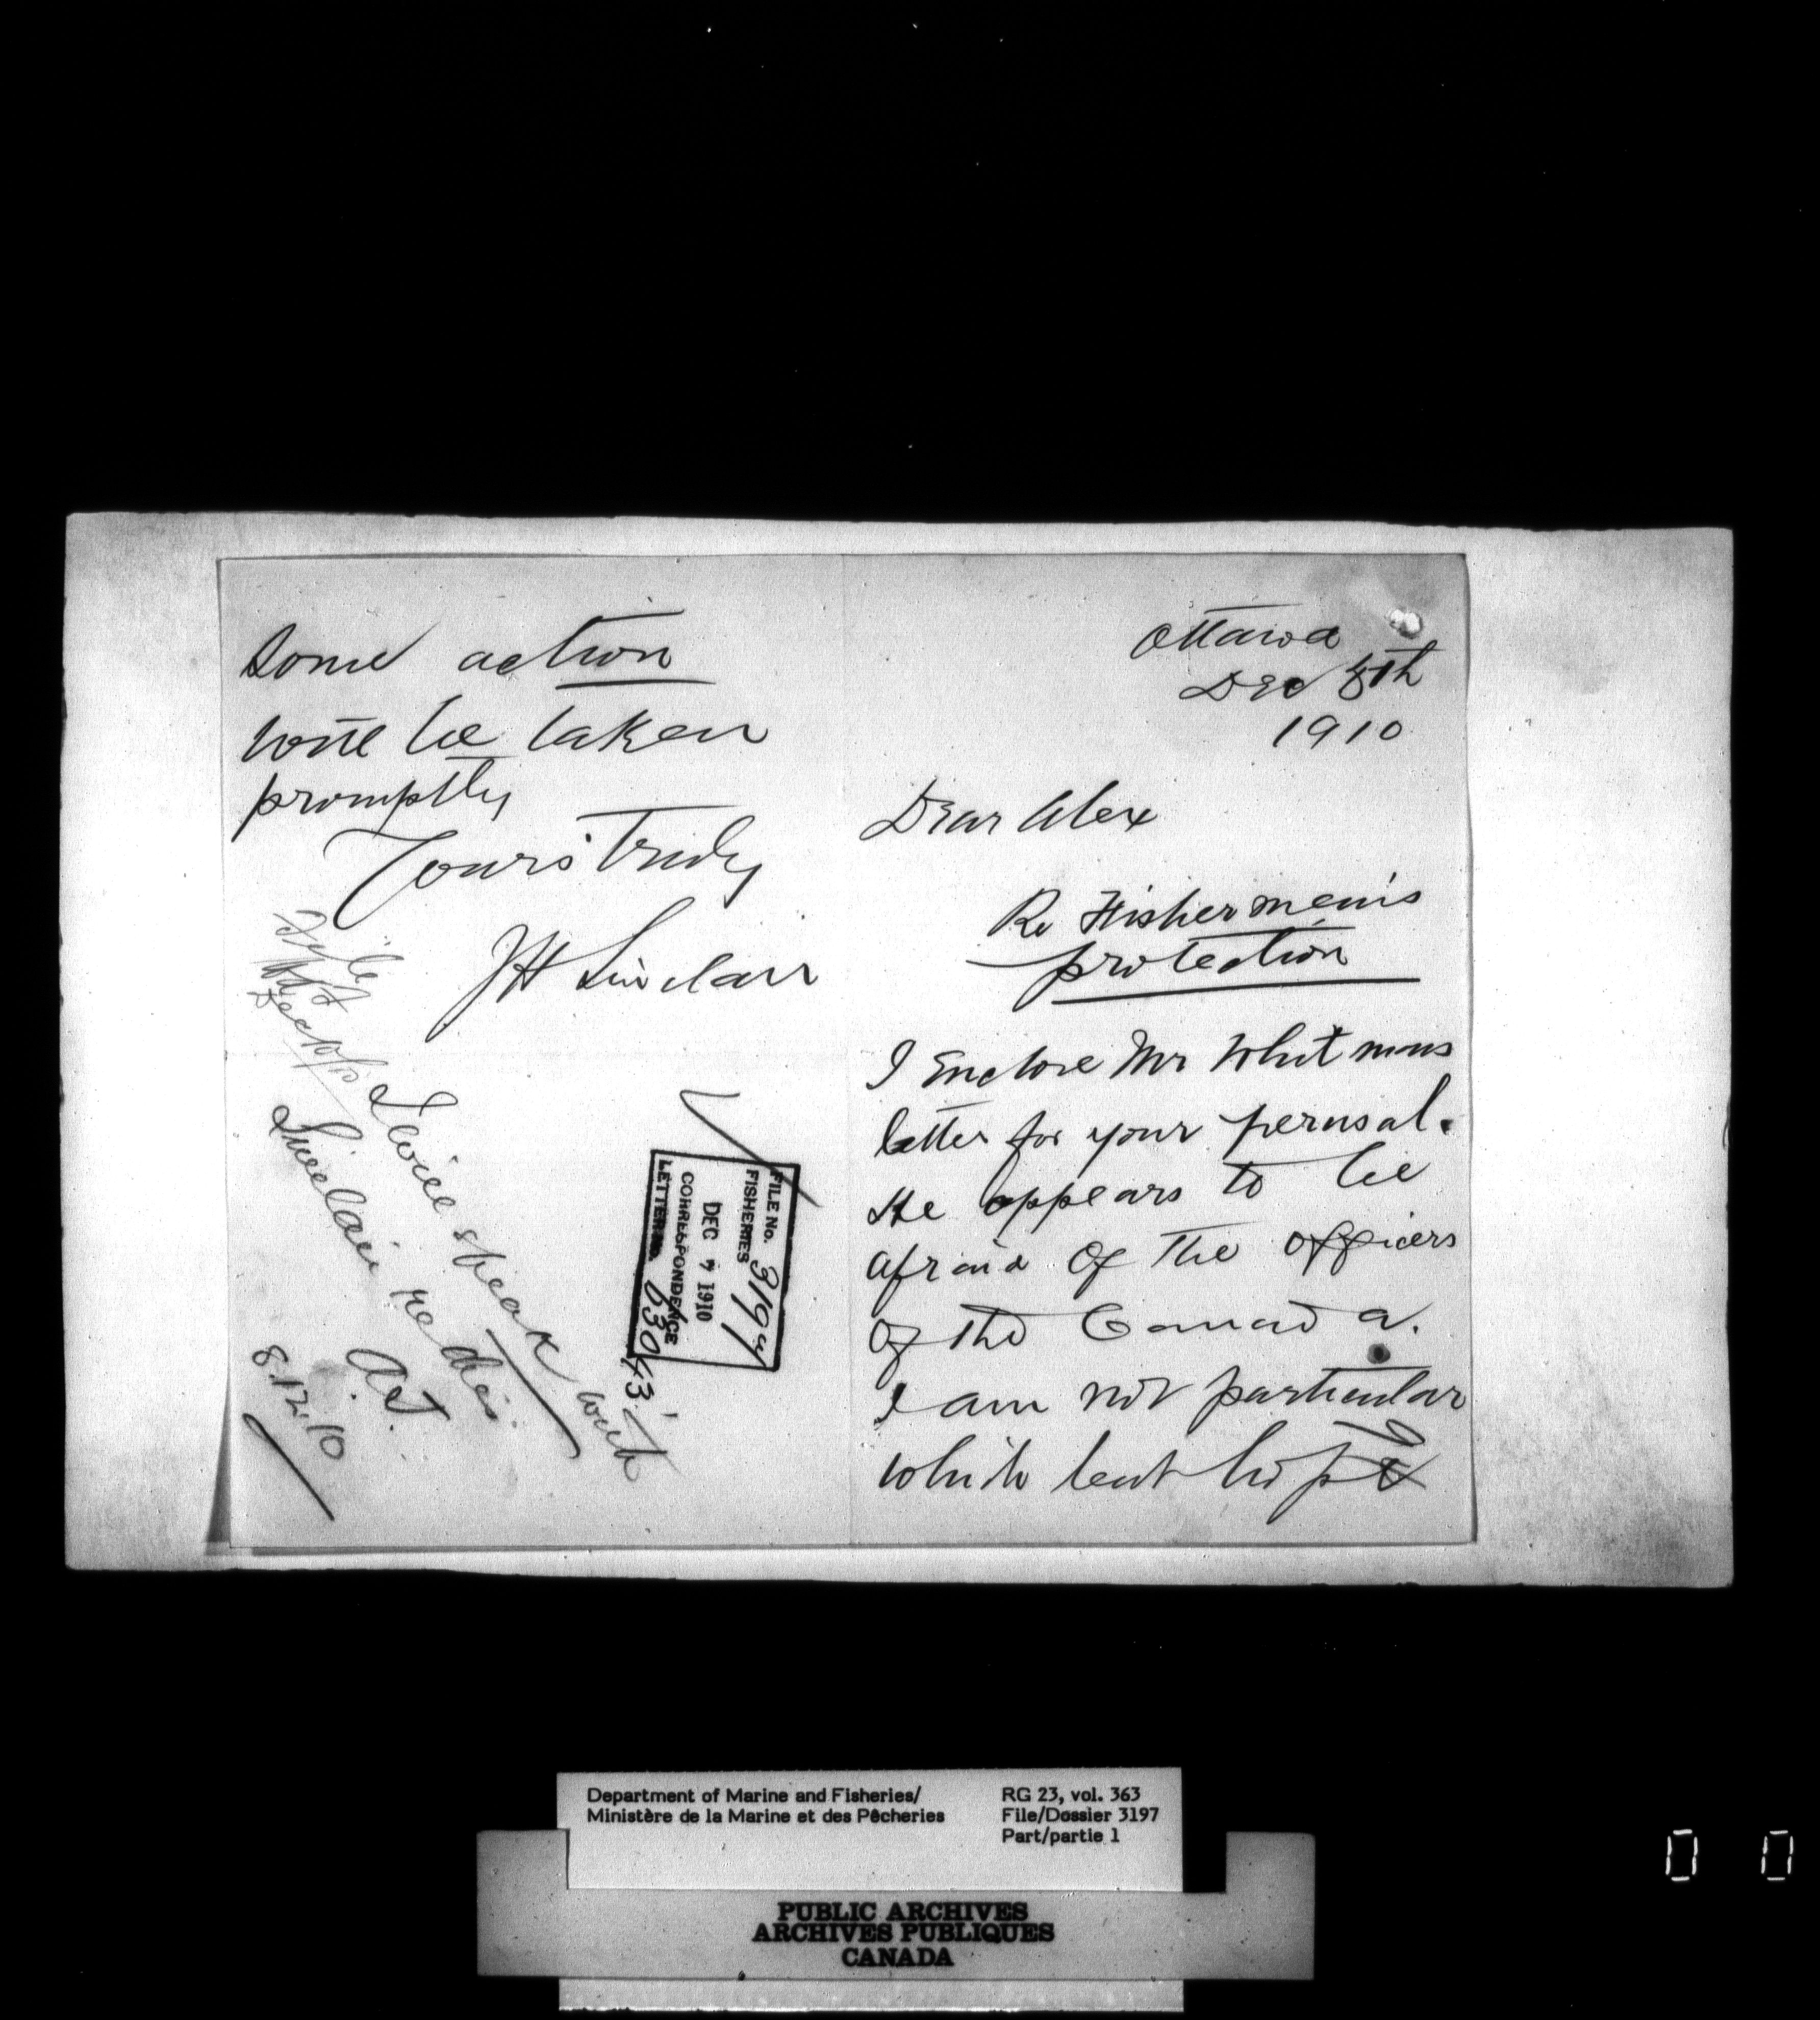 Ottawa
Dec 5th
1910
Dear Alex
Re Fishermen's
protection
I Enclose Mr Whitmans
letter for your perusal.
He appears to be
afraid of the officers
of the Canada.
I am not particular
which but hope
some action
will be taken
promptly
Yours Truly
JH Sinclair
File
I will speak with
Sinclair re this.
A.J.
8.12.10
FILE No. 3197
FISHERIES
DEC 7 1910
CORRESPONDENCE
LETTER No. 63043
Department of Marine and Fisheries/
Ministère de la Marine et des Pêcheries
RG 23, vol. 363
File/Dossier 3197
Part/partie 1
PUBLIC ARCHIVES
ARCHIVES PUBLIQUES
CANADA
0 0